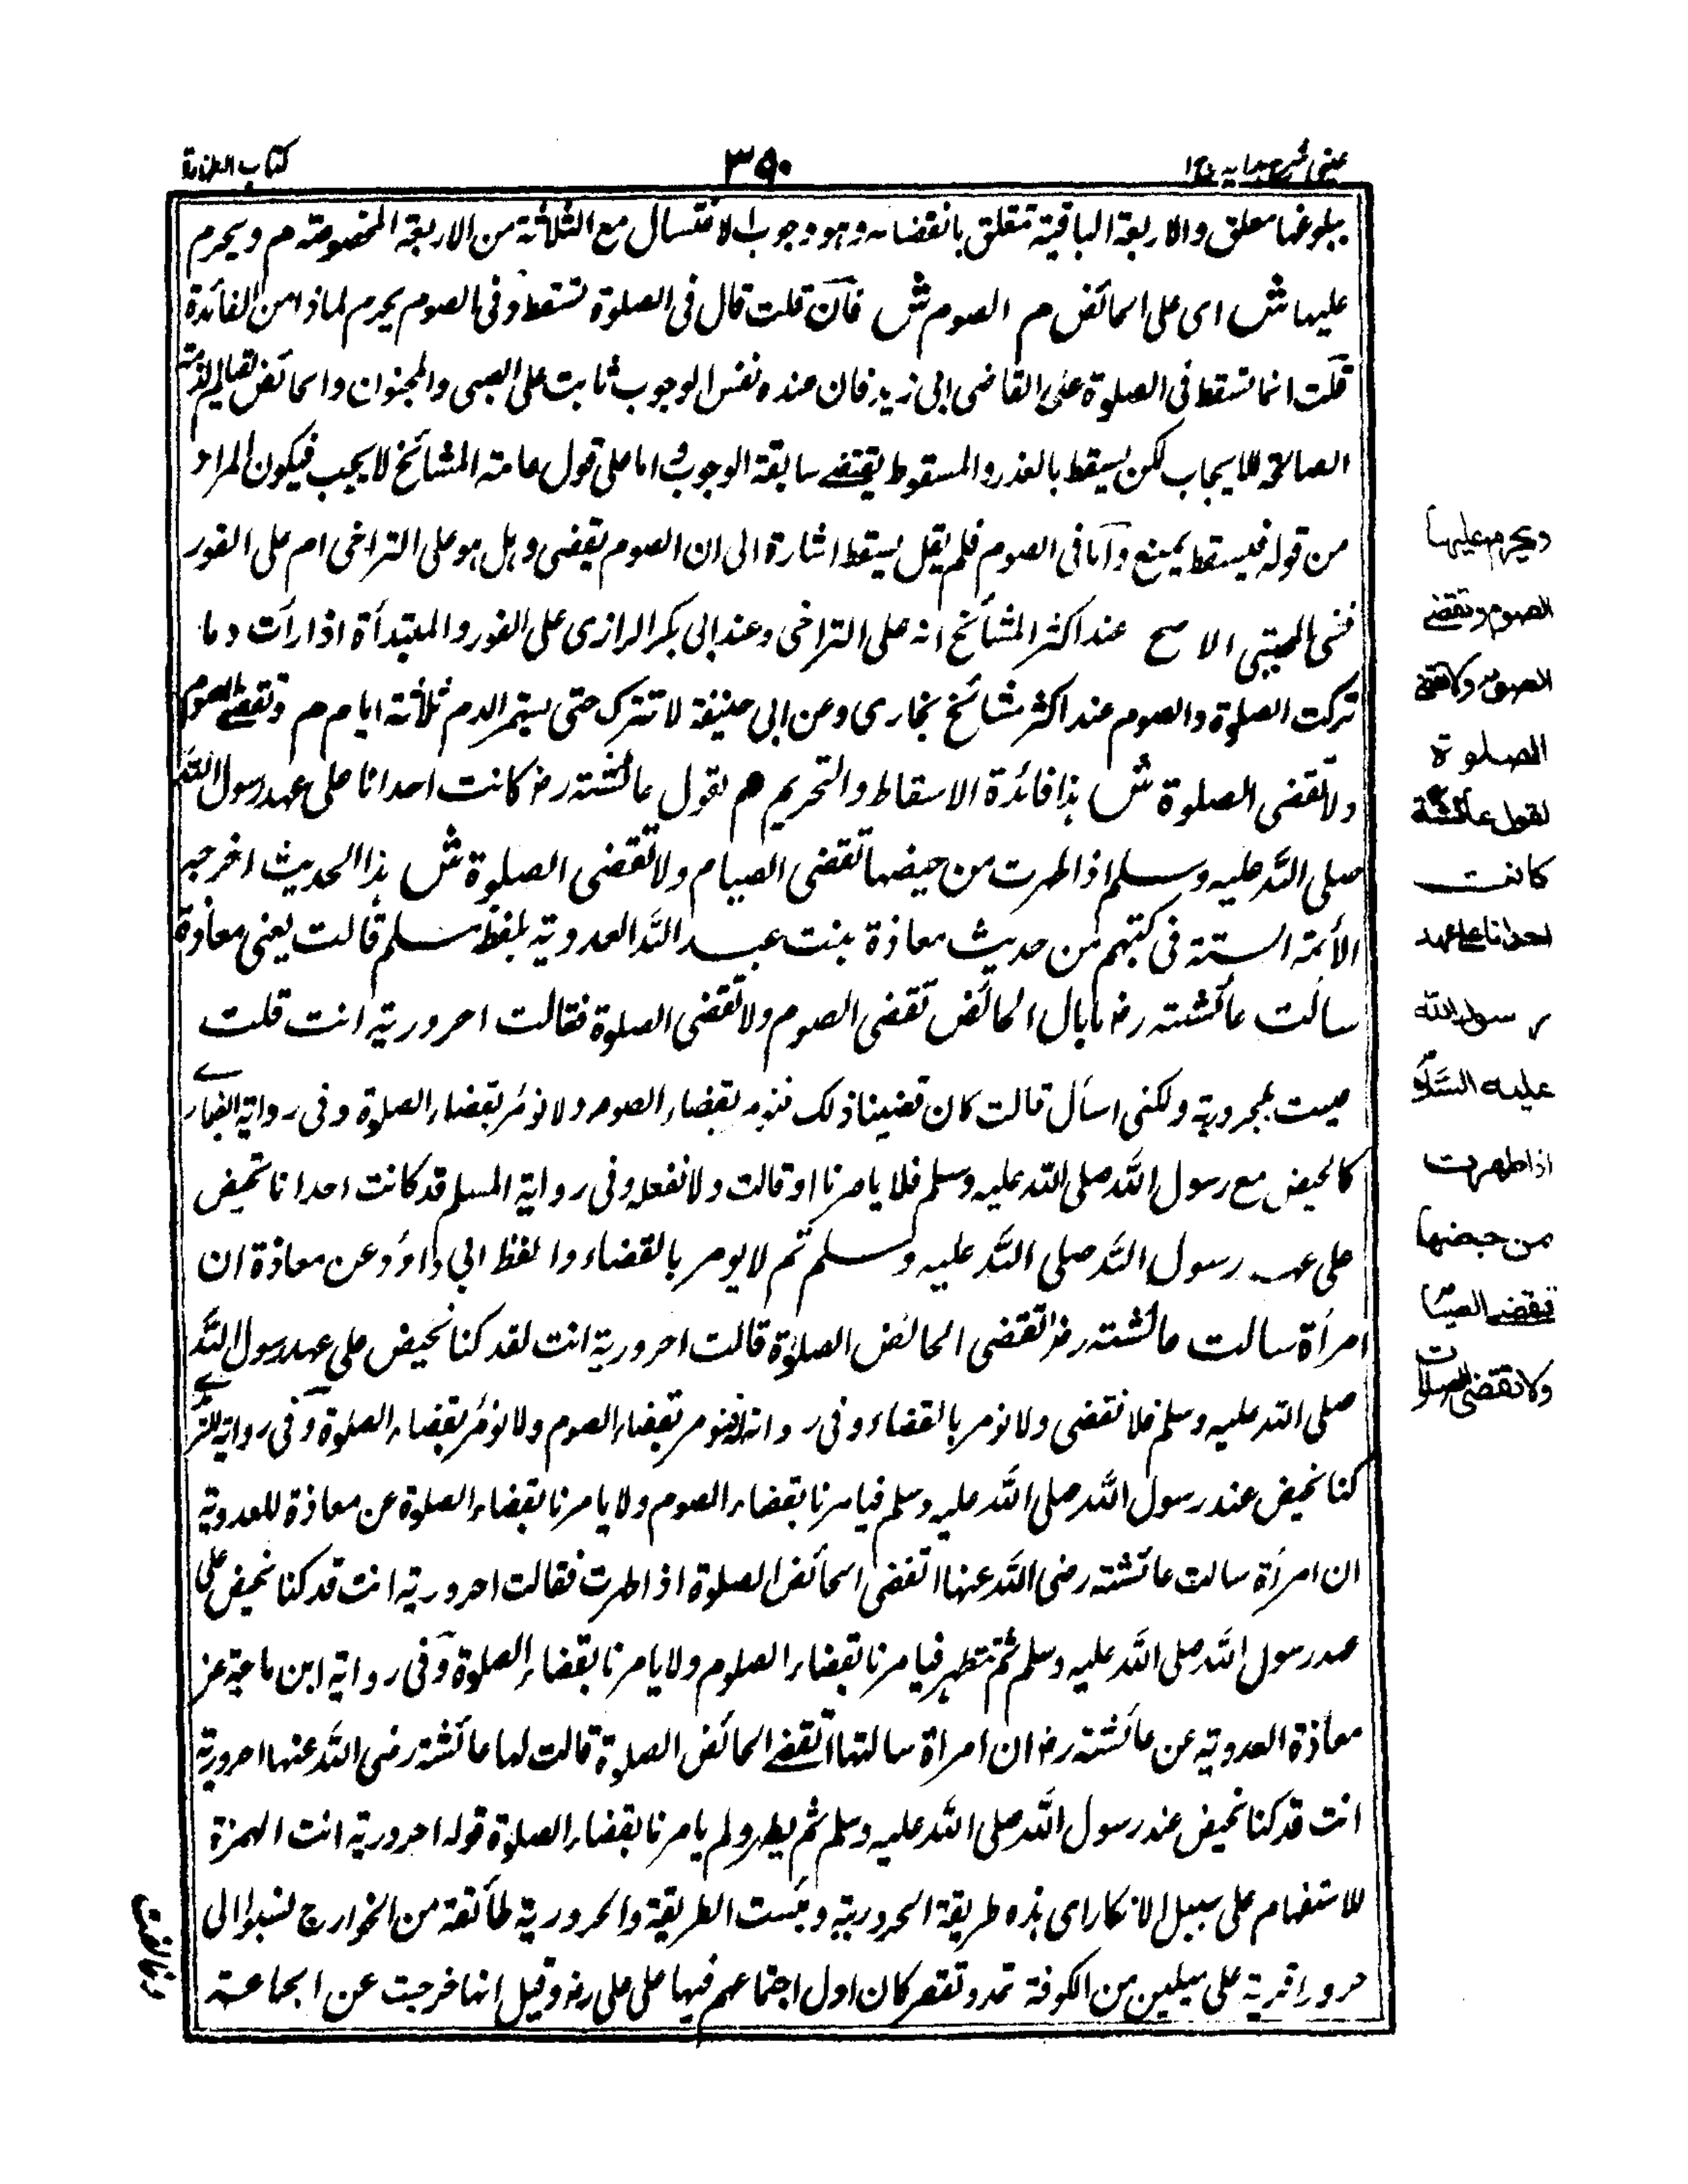 عینی شرح هدایه ج۱
۳۹۰
کتاب الطهارة
ببلوغها معلق والاربعة الباقیة تتعلق بانقضائه وهو وجوب الاغتسال مع الثلاثة من الاربعة المخصوصة م ویحرم
علیها ش ای علی الحائض م الصوم ش فان قلت قال فی الصلوة تسقط وفی الصوم یحرم لماذا من الفائدة
قلت انما تسقط فی الصلوة علی القاضی ابی زید فان عنده نفس الوجوب ثابت علی الصبی والمجنون والحائض لقیام الذمة
الصالحة للایجاب لکن یسقط بالعذر والسقوط یقتضے سابقة الوجوب واما علی قول عامة المشائخ لا یجب فیکون المراد
من قوله فیسقط یمنع واما فی الصوم فلم یقل یسقط اشارة الی ان الصوم یقضی وهل هو علی التراخی ام علی الفور
ففی المجتبی الاصح عند اکثر المشائخ انه علی التراخی وعند ابی بکر الرازی علی الفور والمبتدأة اذا رأت دما
ترکت الصلوة والصوم عند اکثر مشائخ بخاری وعن ابی حنیفة لا تترک حتی یستمر الدم ثلاثة ایام م وتقضے الصوم
ولا تقضی الصلوة ش هذا فائدة الاسقاط والتحریم م لقول عائشته رض کانت احدانا علی عهد رسول الله
صلی الله علیه وسلم اذا طهرت من حیضها تقضی الصیام ولا تقضی الصلوة ش هذا الحدیث اخرجه
الأئمة الستة فی کتبهم من حدیث معاذة بنت عبد الله العدویة بلفظ مسلم قالت یعنی معاذة
سالت عائشته رض ما بال الحائض تقضی الصوم ولا تقضی الصلوة فقالت احروریة انت قلت
لیست بحروریة ولکنی اسأل قالت کان یصیبنا ذلک فنؤمر بقضاء الصوم ولا نؤمر بقضاء الصلوة وفی روایة البخاری
کنا نحیض مع رسول الله صلی الله علیه وسلم فلا یامرنا او قالت ولا نفعله وفی روایة المسلم قد کانت احدانا تحیض
علی عهد رسول الله صلی الله علیه وسلم ثم لا یومر بالقضاء والفظ ابی داؤد عن معاذة ان
امرأة سالت عائشته رض اتقضی الحائض الصلوة قالت احروریة انت لقد کنا نحیض علی عهد رسول الله
صلی الله علیه وسلم فلا نقضی ولا نومر بالقضاء وفی روایة فنومر بقضاء الصوم ولا نومر بقضاء الصلوة وفی روایة الترمذی
کنا نحیض عند رسول الله صلی الله علیه وسلم فیامرنا بقضاء الصوم ولا یامرنا بقضاء الصلوة عن معاذة العدویة
ان امرأة سالت عائشته رضی الله عنها اتقضی الحائض الصلوة اذا طهرت فقالت احروریة انت قد کنا نحیض علی
عهد رسول الله صلی الله علیه وسلم ثم تتطهر فیامرنا بقضاء الصوم ولا یامرنا بقضاء الصلوة وفی روایة ابن ماجة عن
معاذة العدویة عن عائشته رض ان امرأة سالتها اتقضے الحائض الصلوة قالت لها عائشته رضی الله عنها احروریة
انت قد کنا نحیض عند رسول الله صلی الله علیه وسلم ثم یطهر ولم یامرنا بقضاء الصلوة قوله احروریة انت الهمزة
للاستفهام علی سبیل الانکار ای هذه طریقة الحروریة وبئست الطریقة والحروریة طائفة من الخوارج نسبوا الی
حرورا قریة علی میلین من الکوفة تمد وتقصر کان اول اجتماعهم فیها علی علی رض وقیل انها خرجت عن الجماعة
ویحرم علیها
الصوم وتقضے
الصوم ولا تقضے
الصلوة
لقول عائشة
کانت
احدانا علے عهد
رسول الله
علیه السلام
اذا طهرت
من حیضها
تقضے الصیام
ولا تقضی الصلات